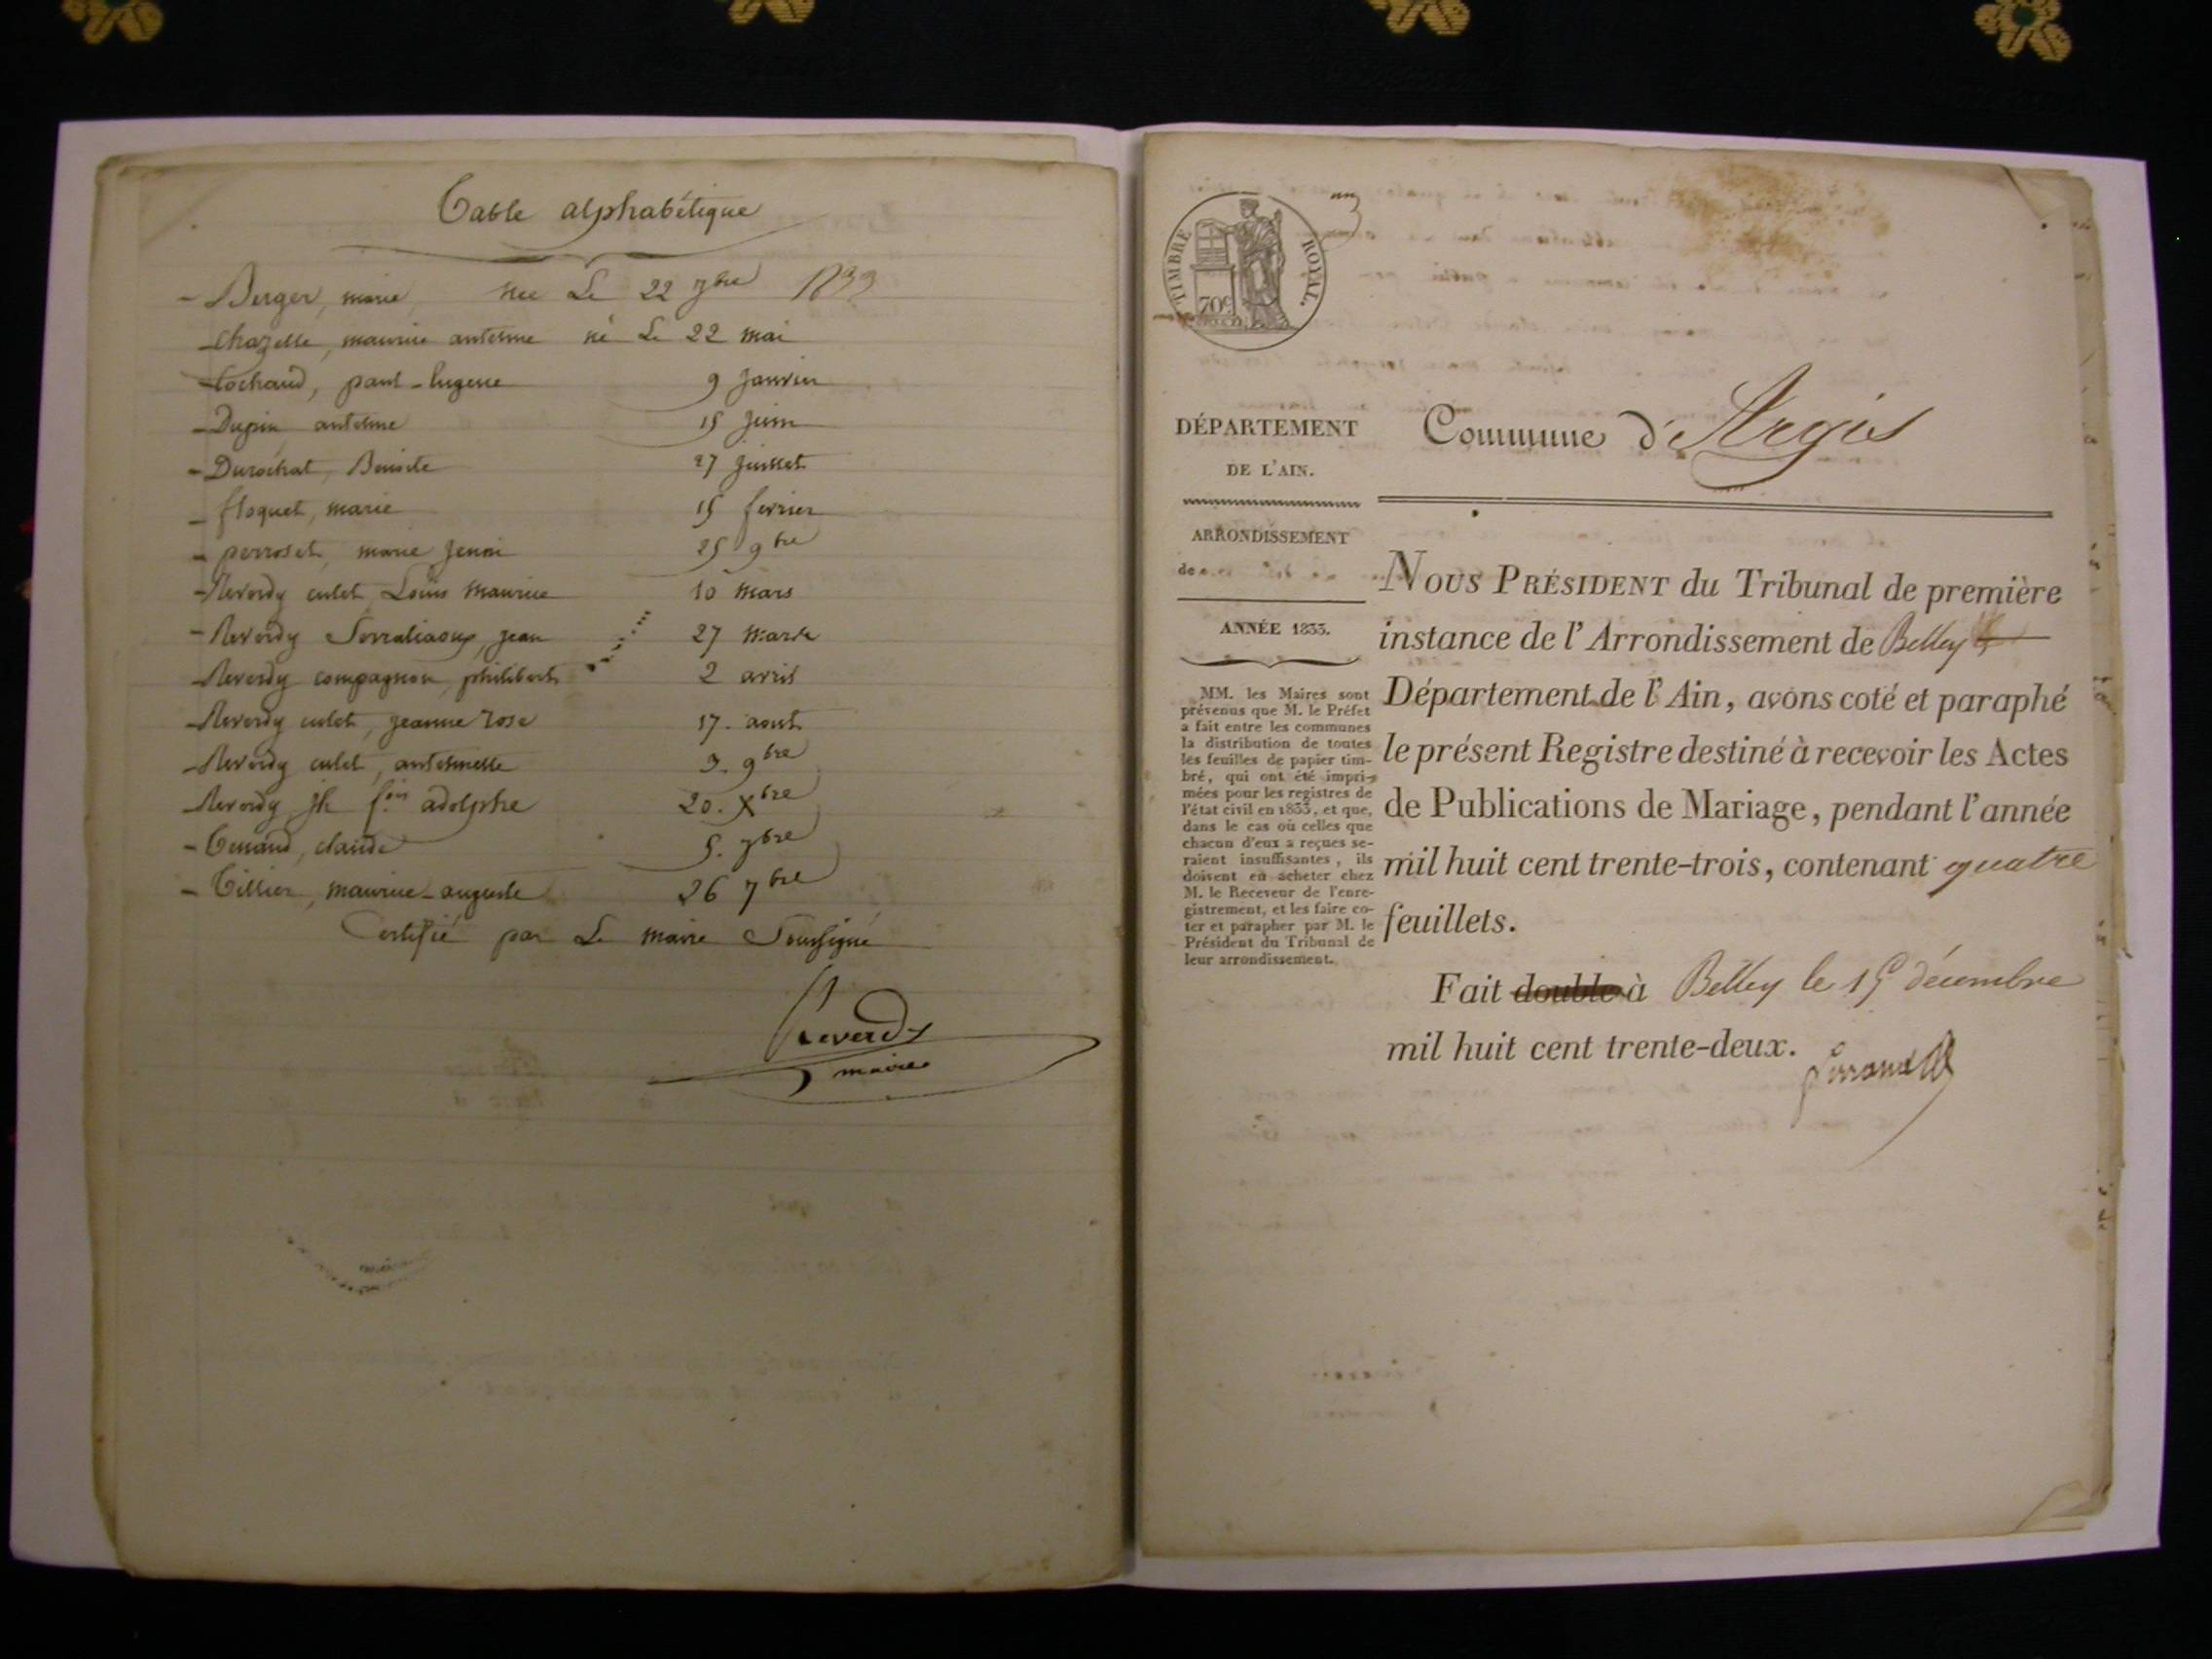 Table alphabétique
- Berger, marie, née Le 22 7bre 1833
- Chazelle, maurice antoine né Le 22 mai
- Cochaud, paul-Eugene 9 Janvier
- Dupin antoine 15 Juin
- Durochat, Benoite 27 Juillet
- floquet, marie 15 fevrier
- perroset, marie Jenni 25 9bre
- Reverdy culet Louis maurice 10 mars
- Reverdy Serraliaoux, jean 27 mars
- Reverdy compagnon philibert 2 avril
- Reverdy culet, jeanne rose 17. aout
- Reverdy culet, antoinette 3. 9bre
- Reverdy jh fois adolphe 20. Xbre
- Tenand, claude 5. 7bre
- Tillier, maurice-auguste 26 7bre
Certifié par Le maire Soussigné
Reverdy
maire
TIMBRE ROYAL.
70c
un
DÉPARTEMENT
DE L'AIN.
Commune d'Argis
ARRONDISSEMENT
de
ANNÉE 1833.
MM. les Maires sont
prévenus que M. le Préfet
a fait entre les communes
la distribution de toutes
les feuilles de papier tim-
bré, qui ont été impri-
mées pour les registres de
l'état civil en 1833, et que,
dans le cas où celles que
chacun d'eux a reçues se-
raient insuffisantes, ils
doivent en acheter chez
M. le Receveur de l'enre-
gistrement, et les faire co-
ter et parapher par M. le
Président du Tribunal de
leur arrondissement.
NOUS PRÉSIDENT du Tribunal de première
instance de l'Arrondissement de Belley
Département de l'Ain, avons coté et paraphé
le présent Registre destiné à recevoir les Actes
de Publications de Mariage, pendant l'année
mil huit cent trente-trois, contenant quatre
feuillets.
Fait double à Belley le 15 décembre
mil huit cent trente-deux.